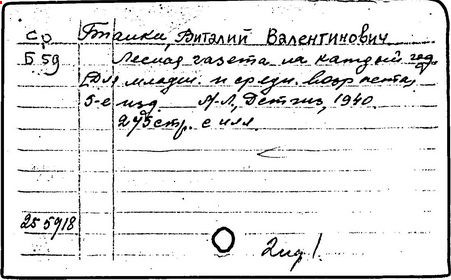 ср Бианки, Виталий Валентинович
Б 59 Лесная газета на каждый год.
[Для младш. и средн. возраста],
5-е изд. М-Л, Детгиз, 1940.
275 стр. с илл.
255918